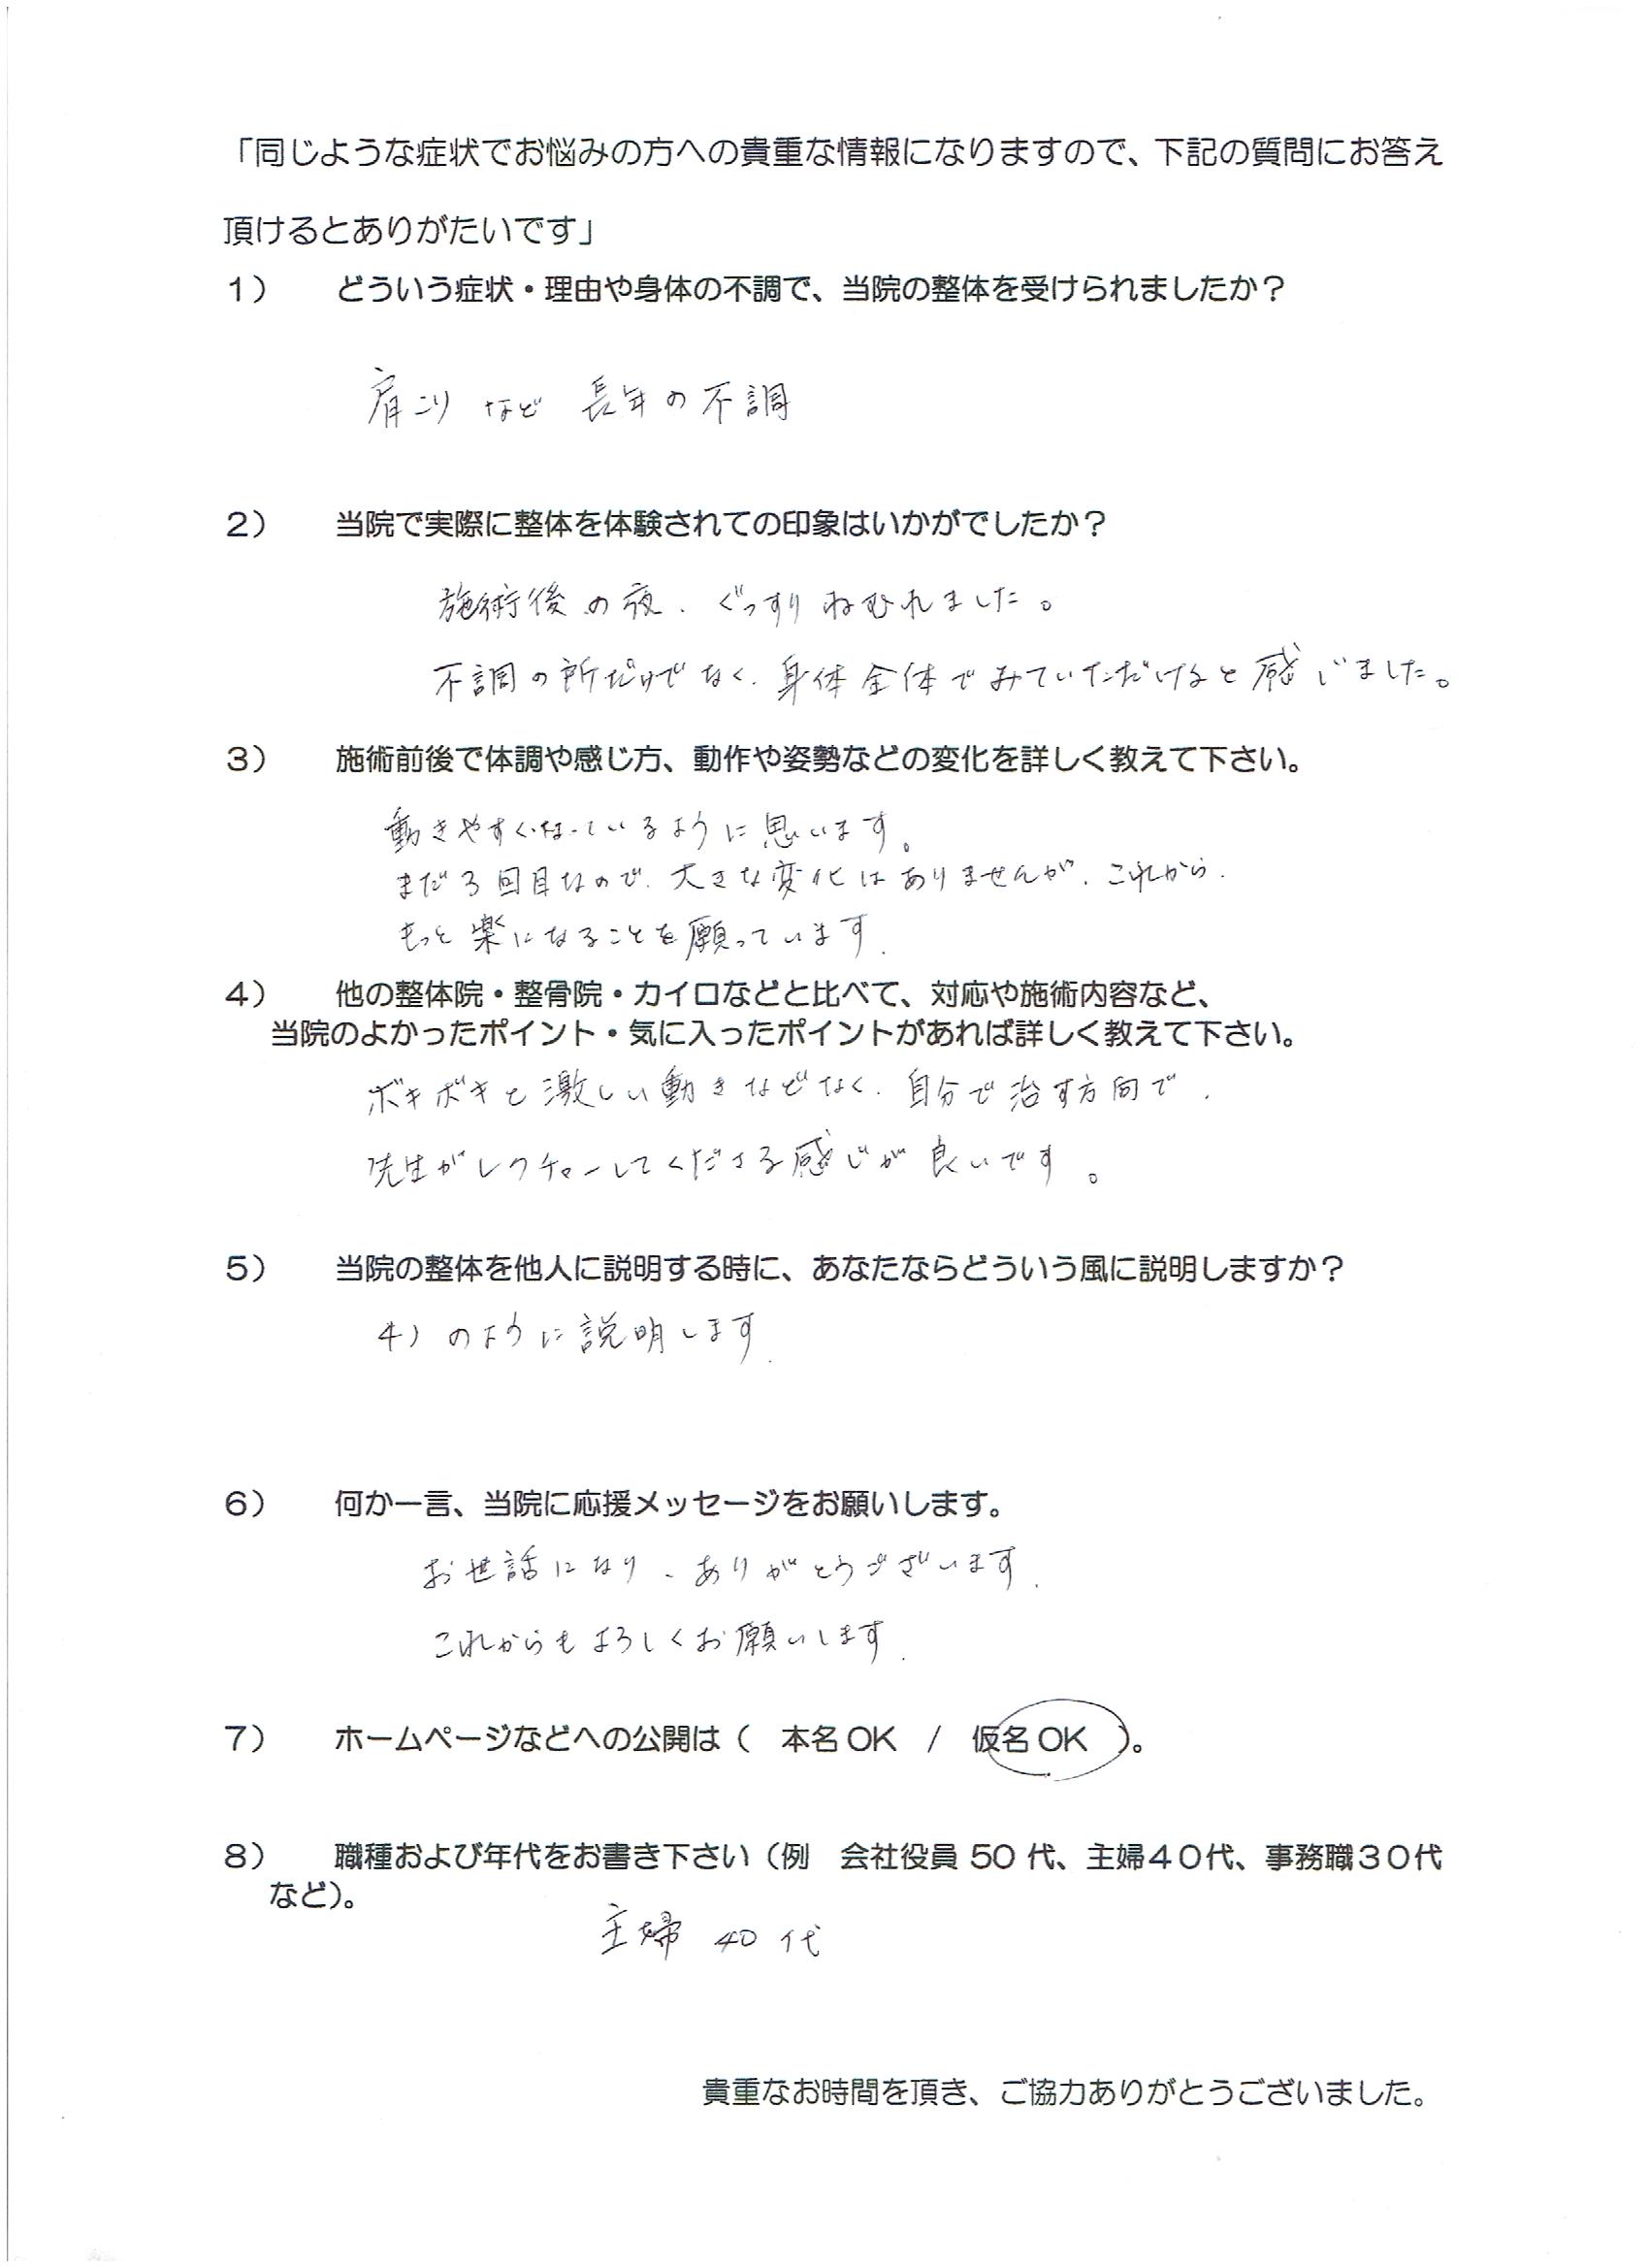 「同じような症状でお悩みの方への貴重な情報になりますので、下記の質問にお答え
頂けるとありがたいです」
1）　どういう症状・理由や身体の不調で、当院の整体を受けられましたか？
肩こり など 長年の不調
2）　当院で実際に整体を体験されての印象はいかがでしたか？
施術後の夜、ぐっすりねむれました。
不調の所だけでなく、身体全体でみていただけると感じました。
3）　施術前後で体調や感じ方、動作や姿勢などの変化を詳しく教えて下さい。
動きやすくなっているように思います。
まだ3回目なので、大きな変化はありませんが、これから、
もっと楽になることを願っています。
4）　他の整体院・整骨院・カイロなどと比べて、対応や施術内容など、
当院のよかったポイント・気に入ったポイントがあれば詳しく教えて下さい。
ボキボキと激しい動きなどなく、自分で治す方向で、
先生がレクチャーしてくださる感じが良いです。
5）　当院の整体を他人に説明する時に、あなたならどういう風に説明しますか？
4）のように説明します。
6）　何か一言、当院に応援メッセージをお願いします。
お世話になり、ありがとうございます。
これからもよろしくお願いします。
7）　ホームページなどへの公開は（　本名OK　/　仮名OK　）。
8）　職種および年代をお書き下さい（例　会社役員 50 代、主婦４０代、事務職３０代
など）。
主婦 40代
貴重なお時間を頂き、ご協力ありがとうございました。